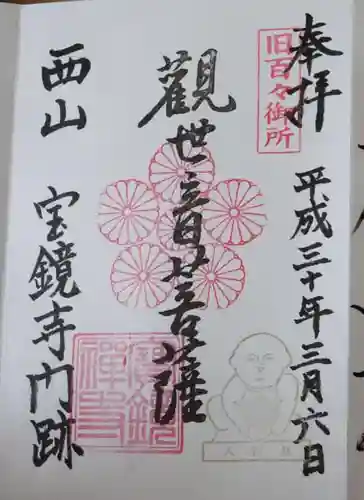 奉拝
旧百々御所
平成三十年三月六日
觀世音菩薩
西山
宝鏡寺門跡